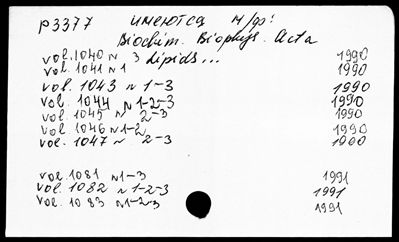 р3377 имеются м/ф!
Biochim. Biophys. Acta
vol. 1040 N 3 Lipids... 1990
vol. 1041 N 1 1990
vol. 1043 N 1-3 1990
vol. 1044 N 1-2-3 1990
vol. 1045 N 2-3 1990
vol. 1046 N 1-2 1990
vol. 1047 N 2-3 1990
vol. 1081 N 1-3 1991
vol. 1082 N 1-2-3 1991
vol. 1083 N 1-2-3 1991